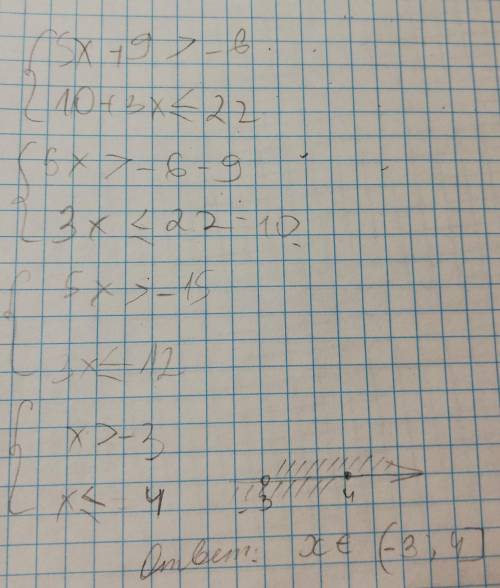 5x + 9 > -6
10 + 3x ≤ 22
5x > -6 - 9
3x ≤ 22 - 10
5x > -15
3x ≤ 12
x > -3
x ≤ 4
-3 4
Ответ: x ∈ (-3; 4]